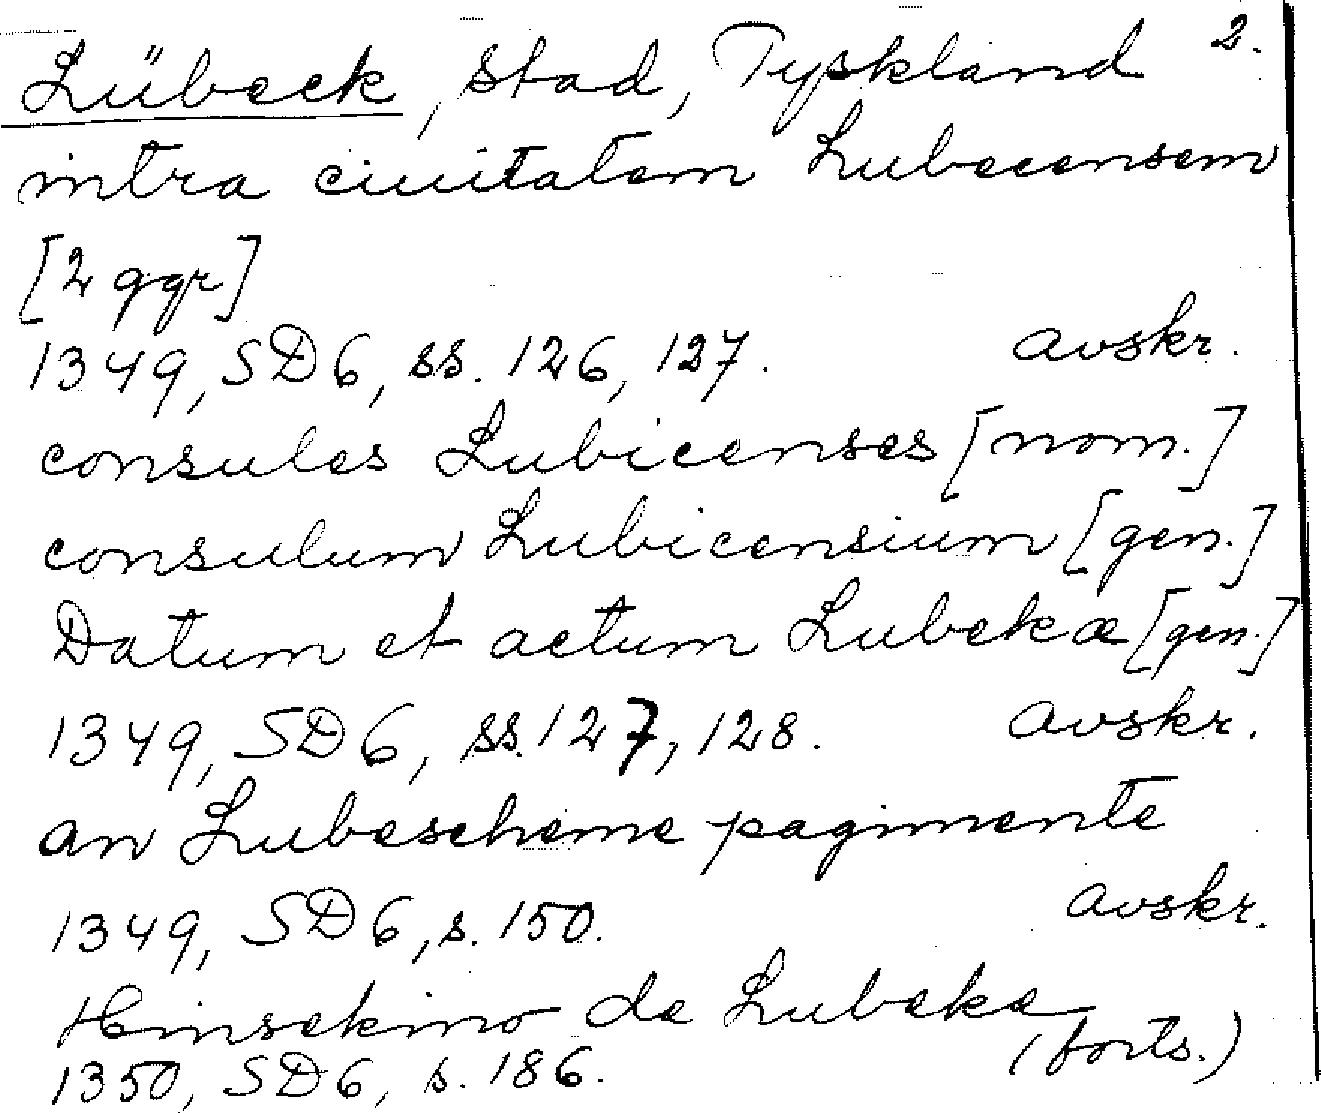 Lübeck, stad, Tyskland 2.
intra ciuitatem Lubecensem
[2 ggr]
1349, SD6, ss. 126, 127. avskr.
consules Lubicenses [nom.]
consulum Lubicensium [gen.]
Datum et actum Lubekæ [gen.]
1349, SD6, ss. 127, 128. avskr.
an Lubescheme pagimente
1349, SD6, s. 150. avskr.
Hinsekino de Lubeke
1350, SD6, s. 186. (forts.)